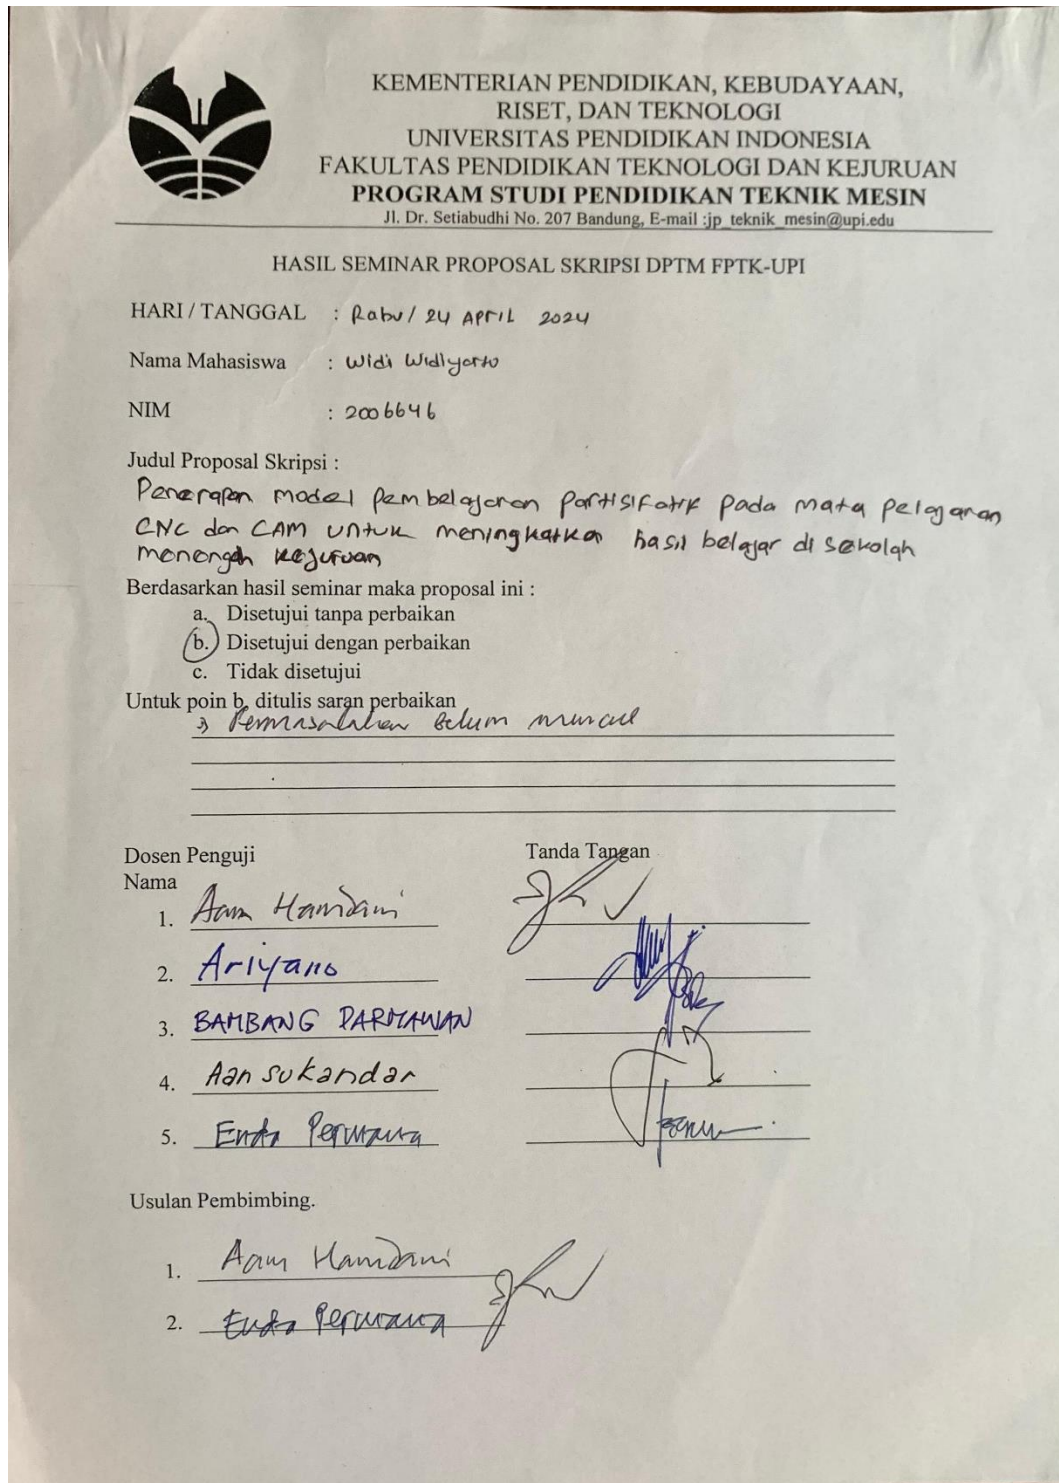 KEMENTERIAN PENDIDIKAN, KEBUDAYAAN,
RISET, DAN TEKNOLOGI
UNIVERSITAS PENDIDIKAN INDONESIA
FAKULTAS PENDIDIKAN TEKNOLOGI DAN KEJURUAN
PROGRAM STUDI PENDIDIKAN TEKNIK MESIN
Jl. Dr. Setiabudhi No. 207 Bandung, E-mail :jp_teknik_mesin@upi.edu
HASIL SEMINAR PROPOSAL SKRIPSI DPTM FPTK-UPI
HARI / TANGGAL : Rabu / 24 APRIL 2024
Nama Mahasiswa : Widi Widiyarto
NIM : 2006646
Judul Proposal Skripsi :
Penerapan model pembelajaran partisifatif pada mata pelajaran
CNC dan CAM untuk meningkatkan hasil belajar di sekolah
menengah kejuruan
Berdasarkan hasil seminar maka proposal ini :
a. Disetujui tanpa perbaikan
b. Disetujui dengan perbaikan
c. Tidak disetujui
Untuk poin b, ditulis saran perbaikan
Permasalahan belum muncul
Dosen Penguji Tanda Tangan
Nama
1. Aam Hamdani
2. Ariyano
3. BAMBANG DARMAWAN
4. Aan sukandar
5. Enda Permana
Usulan Pembimbing.
1. Aam Hamdani
2. Enda Permana